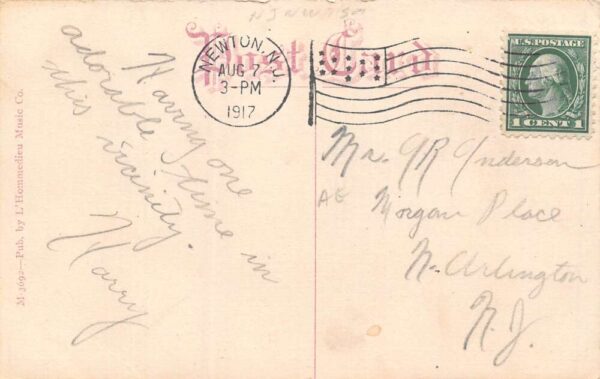 N J NEWTON
Post Card
NEWTON, N.J.
AUG 7
3-PM
1917
U.S. POSTAGE
1 CENT 1
Having one
adorable time in
this vicinity.
Harry
Mr. J R Anderson
Morgan Place
N. Arlington
N. J.
M-3692—Pub. by L'Hommedieu Music Co.